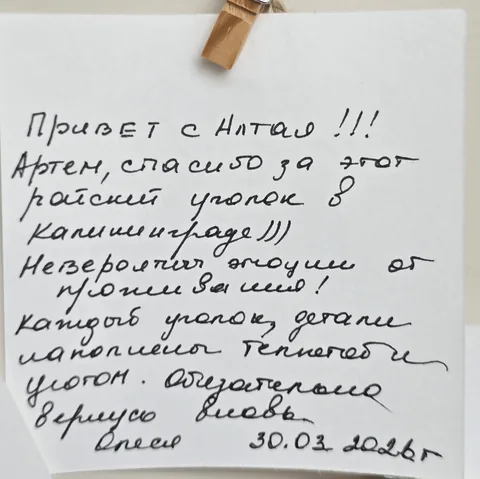 Привет с Алтая!!!
Артем, спасибо за этот
райский уголок в
Калининграде)))
Невероятн эмоции от
проживания!
Каждый уголок, детали
наполнены теплотой и
уютом. Обязательно
вернусь вновь.
Олеся 30.03.2026г